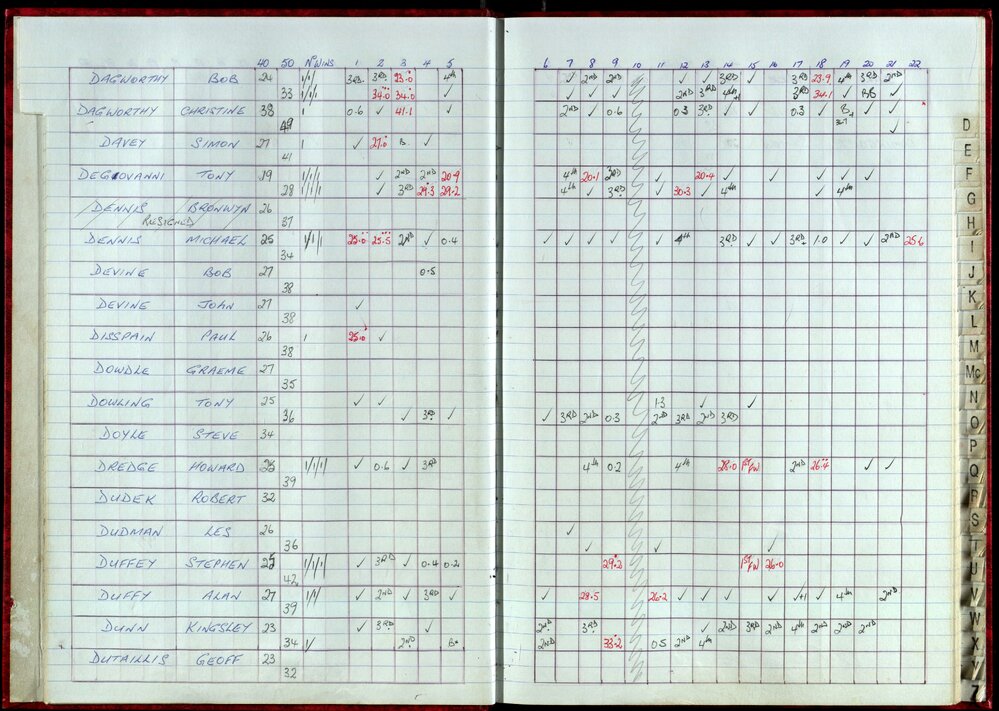 40 50 Nº WINS 1 2 3 4 5 6 7 8 9 10 11 12 13 14 15 16 17 18 19 20 21 22
DAGWORTHY BOB 24 3RD 3RD 23.0 4th ✓ 2ND 2ND ✓ ✓ 3RD ✓ 3RD 23.9 4th 3RD 2ND
33 34.0 34.0 ✓ ✓ ✓ ✓ 2ND 3RD 4th 3RD 34.1 ✓ BB ✓
DAGWORTHY CHRISTINE 38 0.6 ✓ 41.1 ✓ 2ND ✓ 0.6 0.3 3RD ✓ ✓ 0.3 ✓ B ✓ ✓
49 ✓
DAVEY SIMON 27 ✓ 27.0 B ✓
41
DEGIOVANNI TONY 19 ✓ 2ND 2ND 20.9 4th 20.1 3RD ✓ 20.4 ✓ ✓ ✓ ✓
28 ✓ 3RD 29.3 29.2 4th ✓ 3RD ✓ 30.3 ✓ 4th ✓ 4th
DENNIS BRONWYN 26
RESIGNED 37
DENNIS MICHAEL 25 25.0 25.5 2ND ✓ 0.4 ✓ ✓ ✓ ✓ ✓ 4th ✓ 3RD ✓ ✓ 3RD 1.0 ✓ ✓ 2ND 25.6
34
DEVINE BOB 27 0.5
38
DEVINE JOHN 27 ✓
38
DISSPAIN PAUL 26 25.0 ✓
38
DOWDLE GRAEME 27
35
DOWLING TONY 25 ✓ ✓ 1.3 ✓ ✓
36 ✓ 3RD ✓ ✓ 3RD 2ND 0.3 2ND 3RD 2ND 3RD
DOYLE STEVE 34
DREDGE HOWARD 25 ✓ 0.6 ✓ 3RD 4th 0.2 4th 28.0 1ST/FW 2ND 26.4 ✓ ✓
39
DUDEK ROBERT 32
DUDMAN LES 26 ✓
36 ✓ ✓ ✓
DUFFEY STEPHEN 25 ✓ 3RD ✓ 0.4 0.2 29.2 1ST/FW 26.0
42
DUFFY ALAN 27 ✓ 2ND ✓ 3RD ✓ ✓ 28.5 ✓ 26.2 ✓ ✓ ✓ ✓ ✓ ✓+1 ✓ 4th 2ND
39
DUNN KINGSLEY 23 ✓ 3RD ✓ 2ND 3RD ✓ 2ND 3RD 2ND 4th 2ND 2ND 2ND
34 2ND B 2ND 33.2 0.5 2ND 4th
DUTAILLIS GEOFF 23
32
D
E
F
G
H
I
J
K
L
M
Mc
N
O
P
Q
R
S
T
U
V
W
X
Y
Z